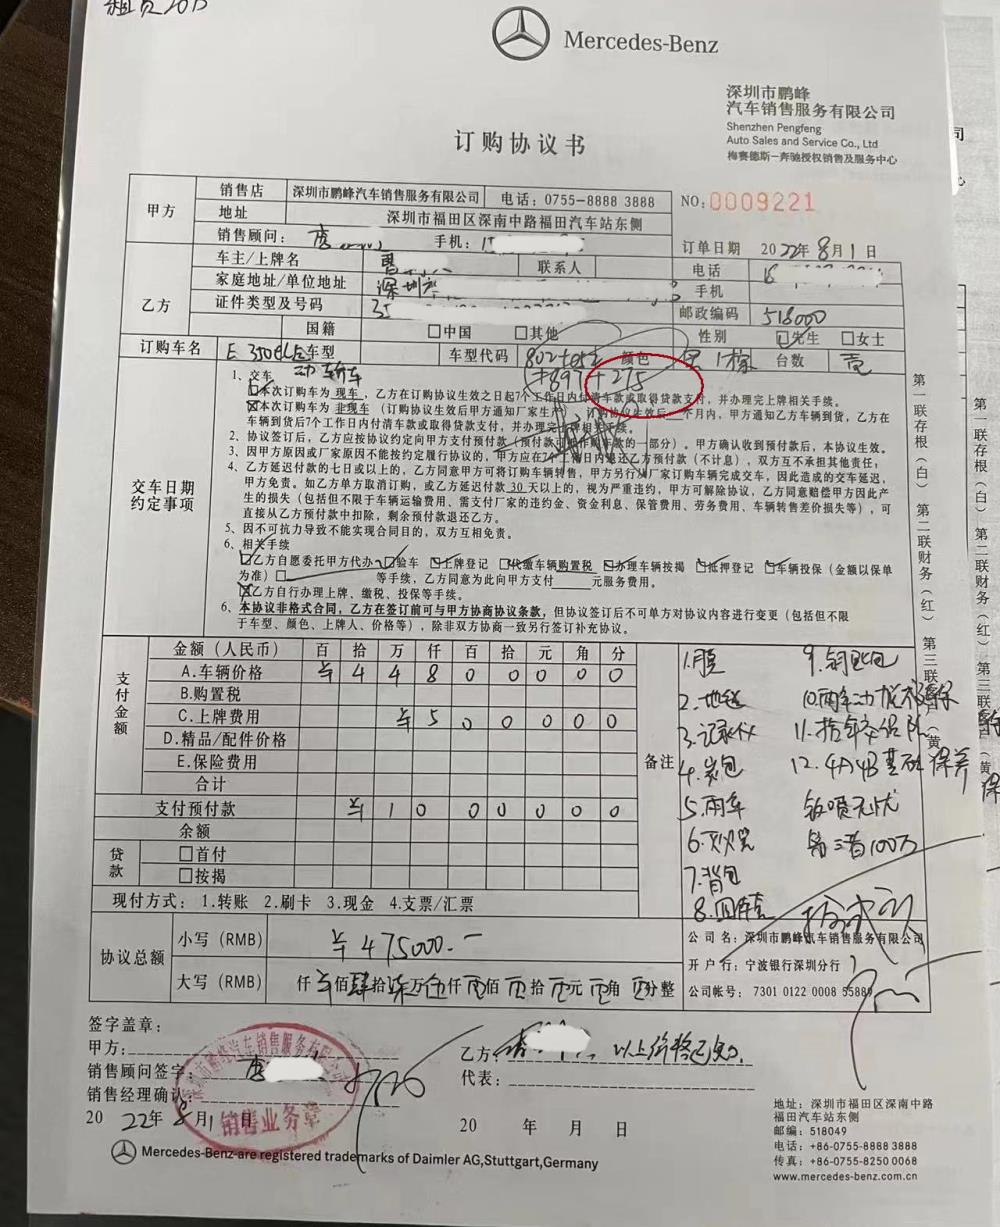 Mercedes-Benz
深圳市鹏峰
汽车销售服务有限公司
Shenzhen Pengfeng
Auto Sales and Service Co., Ltd
梅赛德斯—奔驰授权销售及服务中心
订购协议书
NO:0009221
甲方
销售店 深圳市鹏峰汽车销售服务有限公司 电话：0755-8888 3888
地址 深圳市福田区深南中路福田汽车站东侧
销售顾问： 手机：
订单日期 2022年8月1日
乙方
车主/上牌名 联系人 电话
家庭地址/单位地址 深圳 手机
证件类型及号码 35 邮政编码 518000
国籍 □中国 □其他 性别 □先生 □女士
订购车名 E 350 车型 车型代码 颜色 台数 壹
897+275
交车日期
约定事项
1、交车
□本次订购车为 现车，乙方在订购协议生效之日起7个工作日内付清车款或取得贷款支付，并办理完上牌相关手续。
□本次订购车为 非现车（订购协议生效后甲方通知厂家生产）订购协议生效后 个月内，甲方通知乙方车辆到货，乙方在
车辆到货后7个工作日内付清车款或取得贷款支付，并办理完上牌相关手续。
2、协议签订后，乙方应按协议约定向甲方支付预付款（预付款可作购车款的一部分）。甲方确认收到预付款后，本协议生效。
3、因甲方原因或厂家原因不能按约定履行协议的，甲方应在7个工作日内退还乙方预付款（不计息），双方互不承担其他责任；
4、乙方延迟付款的七日或以上的，乙方同意甲方可将订购车辆转售，甲方另行从厂家订购车辆完成交车，因此造成的交车延迟，
甲方免责。如乙方单方取消订购，或乙方延迟付款30天以上的，视为严重违约，甲方可解除协议，乙方同意赔偿甲方因此产
生的损失（包括但不限于车辆运输费用、需支付厂家的违约金、资金利息、保管费用、劳务费用、车辆转售差价损失等），可
直接从乙方预付款中扣除，剩余预付款退还乙方。
5、因不可抗力导致不能实现合同目的，双方互相免责。
6、相关手续
□乙方自愿委托甲方代办 □验车 □上牌登记 □代缴车辆购置税 □办理车辆按揭 □抵押登记 □车辆投保（金额以保单
为准）□ 等手续，乙方同意为此向甲方支付 元服务费用。
□乙方自行办理上牌、缴税、投保等手续。
6、本协议非格式合同，乙方在签订前可与甲方协商协议条款，但协议签订后不可单方对协议内容进行变更（包括但不限
于车型、颜色、上牌人、价格等），除非双方协商一致另行签订补充协议。
第一联存根（白）第二联财务（红）第三联（黄）
支付金额
金额（人民币） 百 拾 万 仟 百 拾 元 角 分
A.车辆价格 ¥ 4 4 8 0 0 0 0 0
B.购置税
C.上牌费用 ¥ 5 0 0 0 0 0
D.精品/配件价格
E.保险费用
合计
支付预付款 ¥ 1 0 0 0 0 0 0
余额
贷款
□首付
□按揭
现付方式： 1.转账 2.刷卡 3.现金 4.支票/汇票
备注
1.用膜
2.地毯
3.记录仪
4.炭包
5.雨伞
7.背包
9.钥匙包
12.4A4B基础保养
100万
协议总额
小写（RMB） ¥475000.一
大写（RMB） 仟 ¥ 佰 肆 拾 柒 万 伍 仟 佰 拾 元 角 分整
公司名：深圳市鹏峰汽车销售服务有限公司
开户行：宁波银行深圳分行
公司帐号： 7301 0122 0008 55889
签字盖章：
甲方：
销售顾问签字：
销售经理确认：
2022年8月1日
深圳市鹏峰汽车销售服务有限公司
销售业务章
乙方： 以上价格已知
代表：
20 年 月 日
地址：深圳市福田区深南中路
福田汽车站东侧
邮编：518049
电话：+86-0755-8888 3888
传真：+86-0755-8250 0068
www.mercedes-benz.com.cn
Mercedes-Benz-are registered trademarks of Daimler AG,Stuttgart,Germany